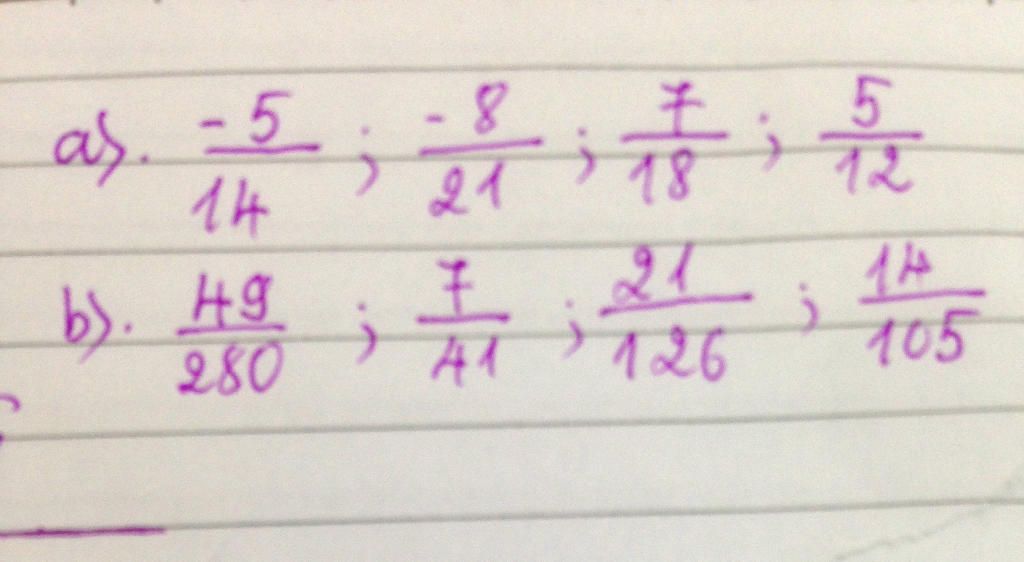 a). -5/14 ; -8/21 ; 7/18 ; 5/12
b). 49/280 ; 7/41 ; 21/126 ; 14/105